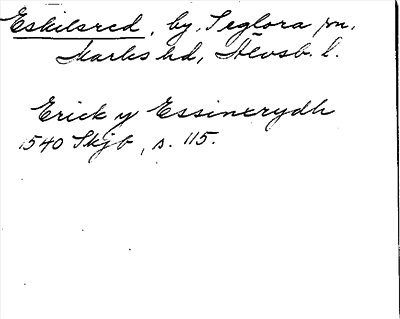 Eskilsred, by, Seglora sn,
Marks hd, Älvsb. l.
Erick y Essinerydh
1540 Skjb, s. 115.